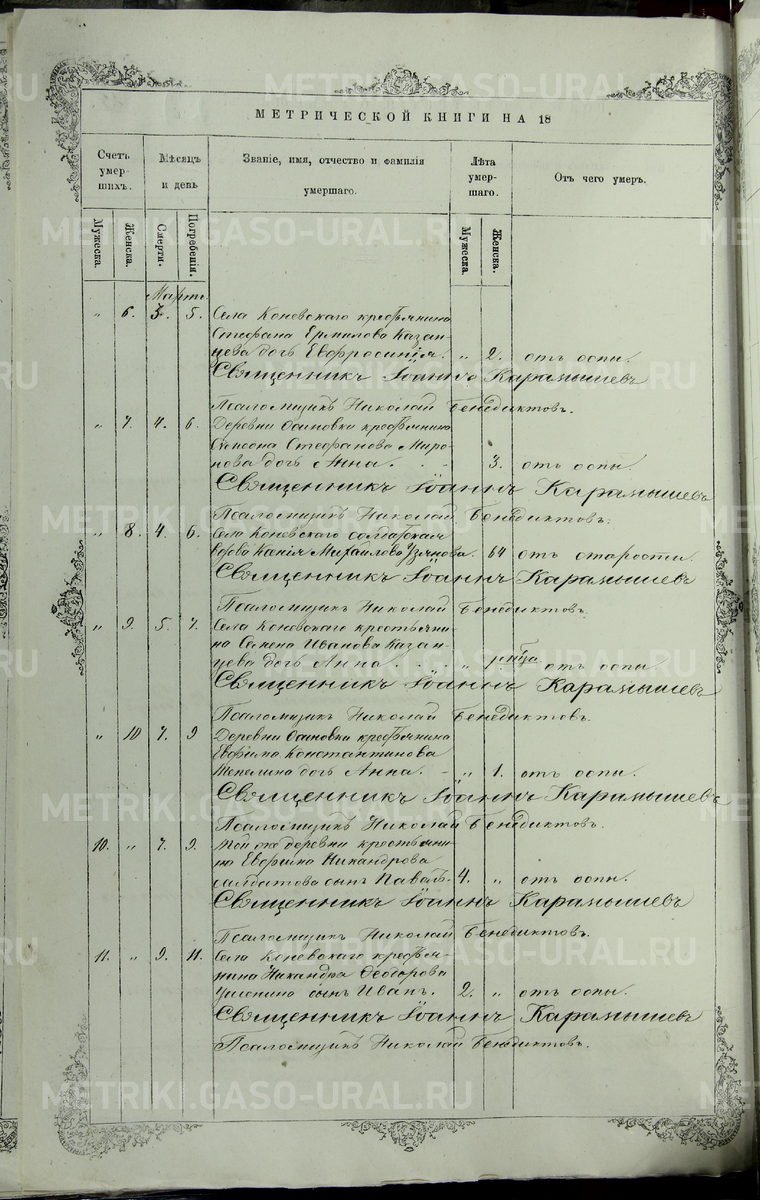 METRIKI.GASO-URAL.RU
МЕТРИЧЕСКОЙ КНИГИ НА 18
Счетъ умер- шихъ. Мѣсяцъ и день Званіе, имя, отчество и фамилія умершаго. Лѣта умер- шаго. Отъ чего умеръ.
Мужеска. Женска. Смерти. Погребенія. Мужеска. Женска.
Мартъ.
„ 6. 3. 5. Села Коневскаго крестьянина
Стефана Ермилова Казан-
цева дочь Евфросинія. „ 2. отъ оспы.
Священникъ Іоаннъ Карамышевъ
Псаломщикъ Николай Бенедиктовъ.
„ 7. 4. 6. Деревни Осиновки крестьянина
Стефанова Миро-
нова дочь Анна. 3. отъ оспы.
Священникъ Іоаннъ Карамышевъ
Псаломщикъ Николай Бенедиктовъ.
„ 8. 4. 6. Села Коневскаго солдатская
вдова Михайлова 64 отъ старости.
Священникъ Іоаннъ Карамышевъ
Псаломщикъ Николай Бенедиктовъ.
„ 9. 5. 7. Села Коневскаго крестьяни-
на Семена Иванова Казан-
цева дочь Анна. „ отъ оспы.
Священникъ Іоаннъ Карамышевъ
Псаломщикъ Николай Бенедиктовъ.
„ 10 7. 9 Деревни Осиновки крестьянина
Евфима Константинова
Шепелина дочь Анна. „ 1. отъ оспы.
Священникъ Іоаннъ Карамышевъ
Псаломщикъ Николай Бенедиктовъ.
10. „ 7. 9. Той же деревни крестьяни-
на Евфима Никандрова
Салдатова сынъ Павелъ. 4. „ отъ оспы.
Священникъ Іоаннъ Карамышевъ
Псаломщикъ Николай Бенедиктовъ.
11. „ 9. 11. Села Коневскаго крестья-
нина Никандра Ѳеодорова
сынъ Иванъ. 2. „ отъ оспы.
Священникъ Іоаннъ Карамышевъ
Псаломщикъ Николай Бенедиктовъ.